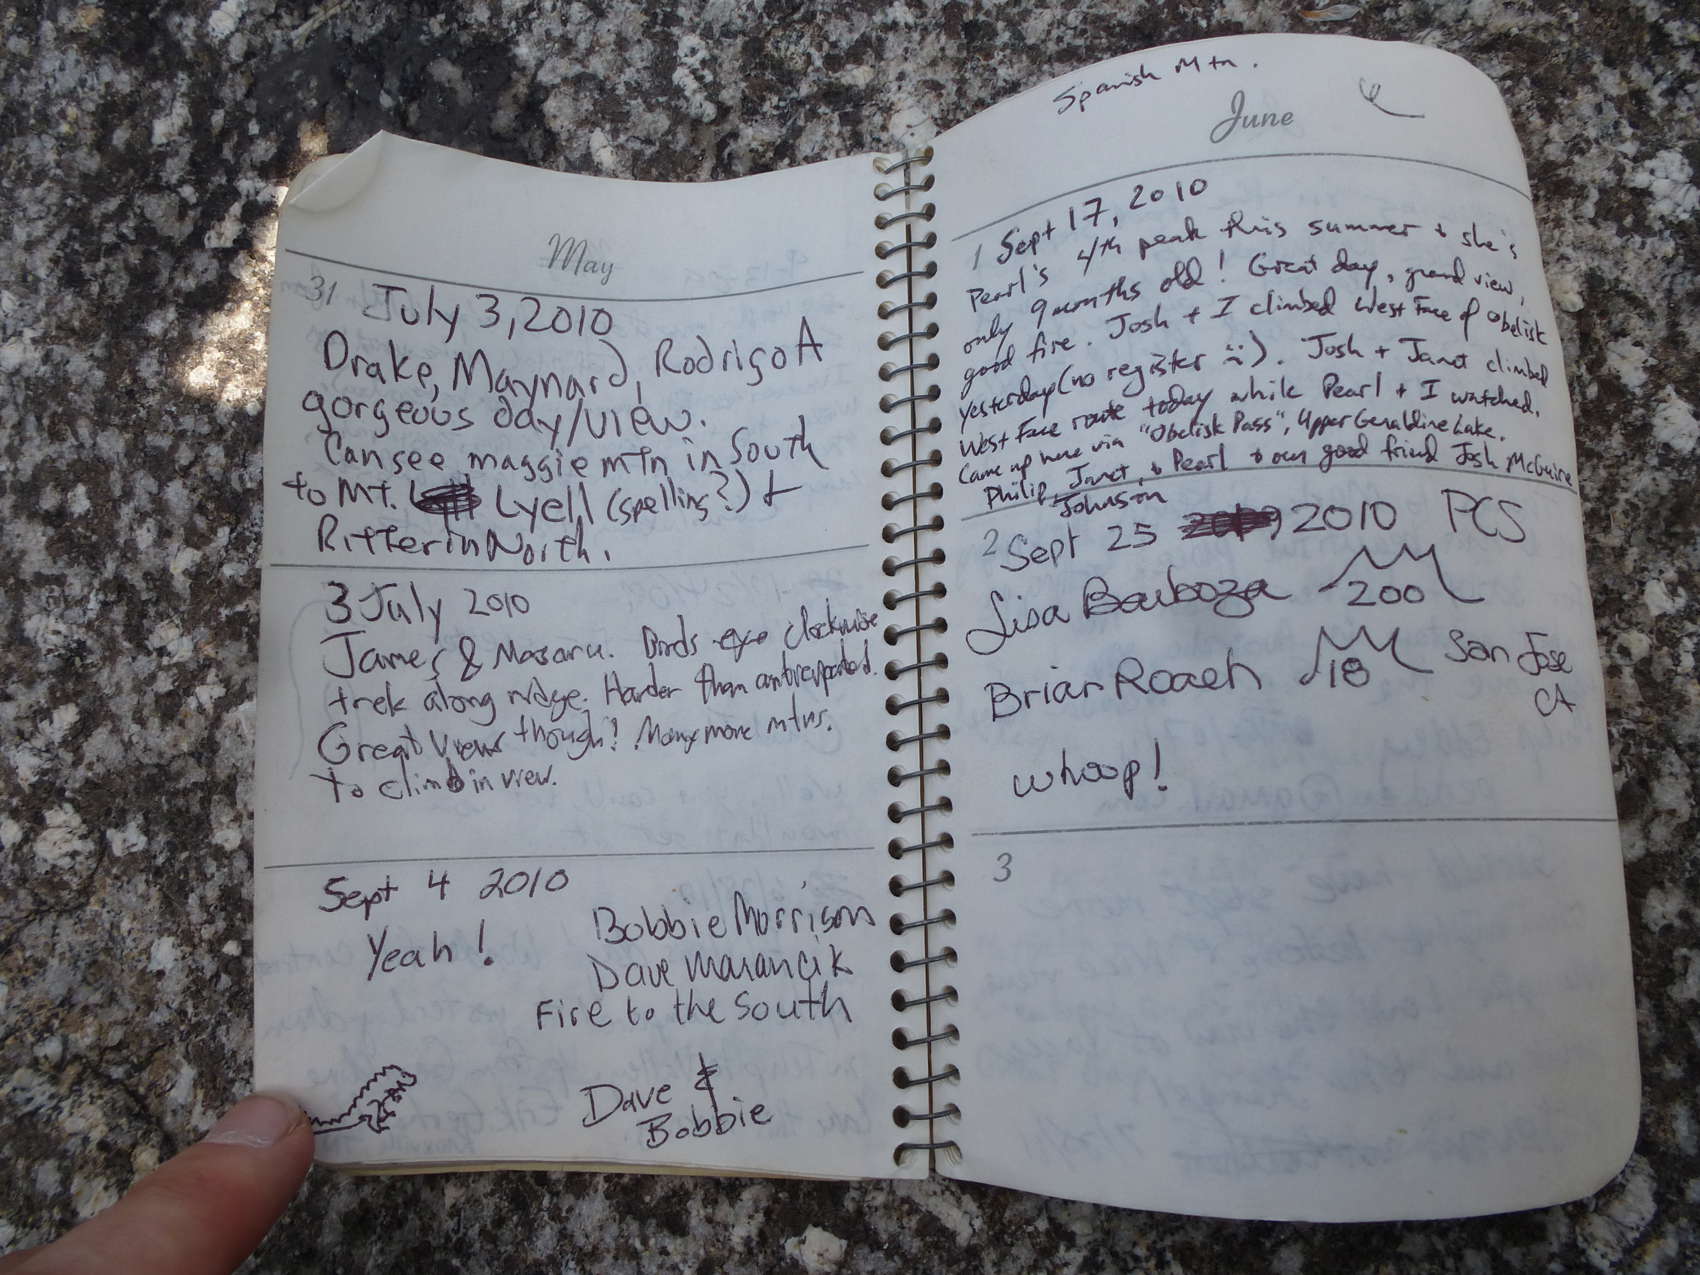 May
31 July 3, 2010
Drake, Maynard, Rodrigo A
gorgeous day/view.
Can see maggie mtn in South
to Mt. Lyell (spelling?) +
Ritter in North.
3 July 2010
James & Masaru. Birds eye clockwise
trek along ridge. Harder than anticipated.
Great views though! Many more mtns.
to climb in view.
Sept 4 2010
Yeah!
Bobbie Morrison
Dave Marancik
Fire to the South
Dave &
Bobbie
Spanish Mtn.
June
1 Sept 17, 2010
Pearl's 4th peak this summer + she's
only 9 months old! Great day, grand view,
good fire. Josh + I climbed West Face of Obelisk
yesterday (no register :( ). Josh + Janet climbed
West Face route today while Pearl + I watched.
Came up here via "Obelisk Pass", Upper Geraldine Lake.
Philip, Janet, + Pearl + our good friend Josh McGuire
Johnson
2 Sept 25 2010 PCS
Lisa Barboza 200
Brian Roach 18 San Jose
CA
whoop!
3